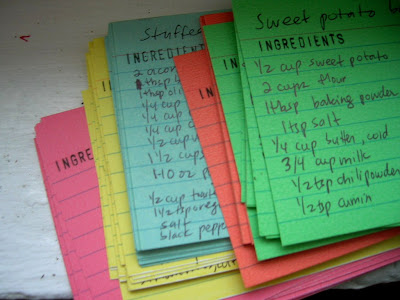 Stuffe
INGREDIENTS
2 acor
1tbsp
1tbsp oli
1/4 cup
1/4 cup
1/4 cup
1/2 cup
1 1/2 cups
1-10 oz p
1/2 cup
1 1/2 tsp oreg
salt
black pepp
Sweet potato
INGREDIENTS
1/2 cup sweet potato
2 cups flour
1 tbsp baking powder
1 tsp salt
1/4 cup butter, cold
3/4 cup milk
1/2 tsp chili powder
1/2 tsp cumin
INGRE
INGR
IN